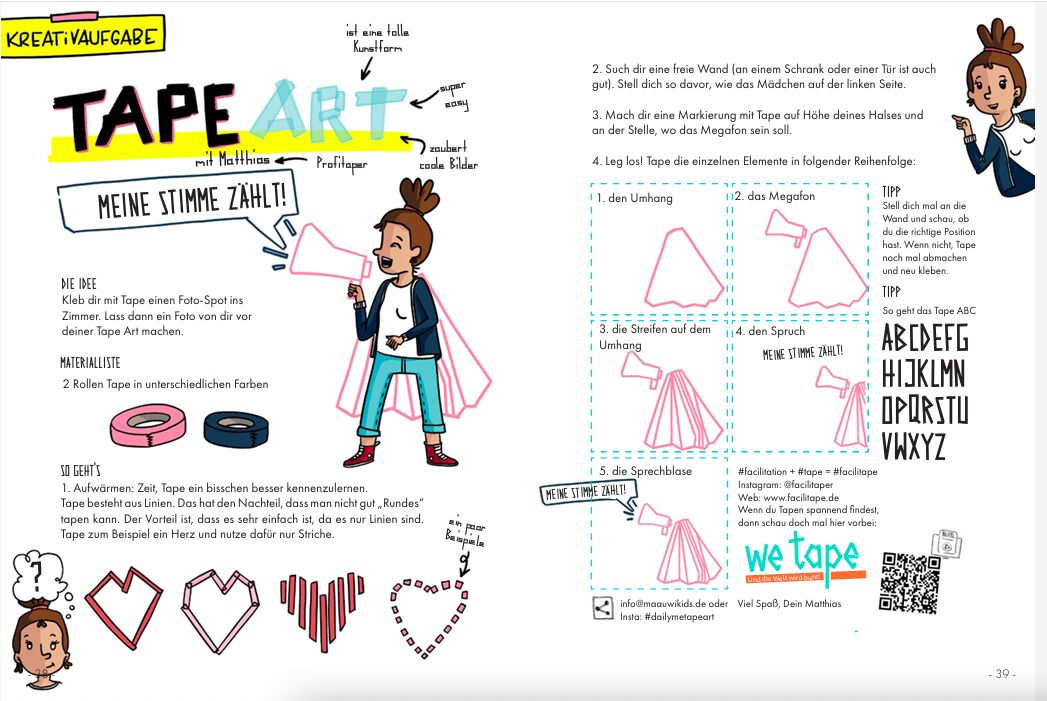 KREATiVAUFGABE
ist eine tolle
Kunstform
TAPE ART
super
easy
zaubert
coole Bilder
mit Matthias
Profitaper
MEINE STIMME ZÄHLT!
DIE IDEE
Kleb dir mit Tape einen Foto-Spot ins
Zimmer. Lass dann ein Foto von dir vor
deiner Tape Art machen.
MATERIALLISTE
2 Rollen Tape in unterschiedlichen Farben
SO GEHT'S
1. Aufwärmen: Zeit, Tape ein bisschen besser kennenzulernen.
Tape besteht aus Linien. Das hat den Nachteil, dass man nicht gut „Rundes“
tapen kann. Der Vorteil ist, dass es sehr einfach ist, da es nur Linien sind.
Tape zum Beispiel ein Herz und nutze dafür nur Striche.
ein paar
Beispiele
?
2. Such dir eine freie Wand (an einem Schrank oder einer Tür ist auch
gut). Stell dich so davor, wie das Mädchen auf der linken Seite.
3. Mach dir eine Markierung mit Tape auf Höhe deines Halses und
an der Stelle, wo das Megafon sein soll.
4. Leg los! Tape die einzelnen Elemente in folgender Reihenfolge:
1. den Umhang
2. das Megafon
3. die Streifen auf dem
Umhang
4. den Spruch
MEINE STIMME ZÄHLT!
5. die Sprechblase
MEINE STIMME ZÄHLT!
TIPP
Stell dich mal an die
Wand und schau, ob
du die richtige Position
hast. Wenn nicht, Tape
noch mal abmachen
und neu kleben.
TIPP
So geht das Tape ABC
ABCDEFG
HIJKLMN
OPQRSTU
VWXYZ
#facilitation + #tape = #facilitape
Instagram: @facilitaper
Web: www.facilitape.de
Wenn du Tapen spannend findest,
dann schau doch mal hier vorbei:
we tape
Und die Welt wird bunt!
BLOG
info@maauwikids.de oder
Insta: #dailymetapeart
Viel Spaß, Dein Matthias
- 39 -